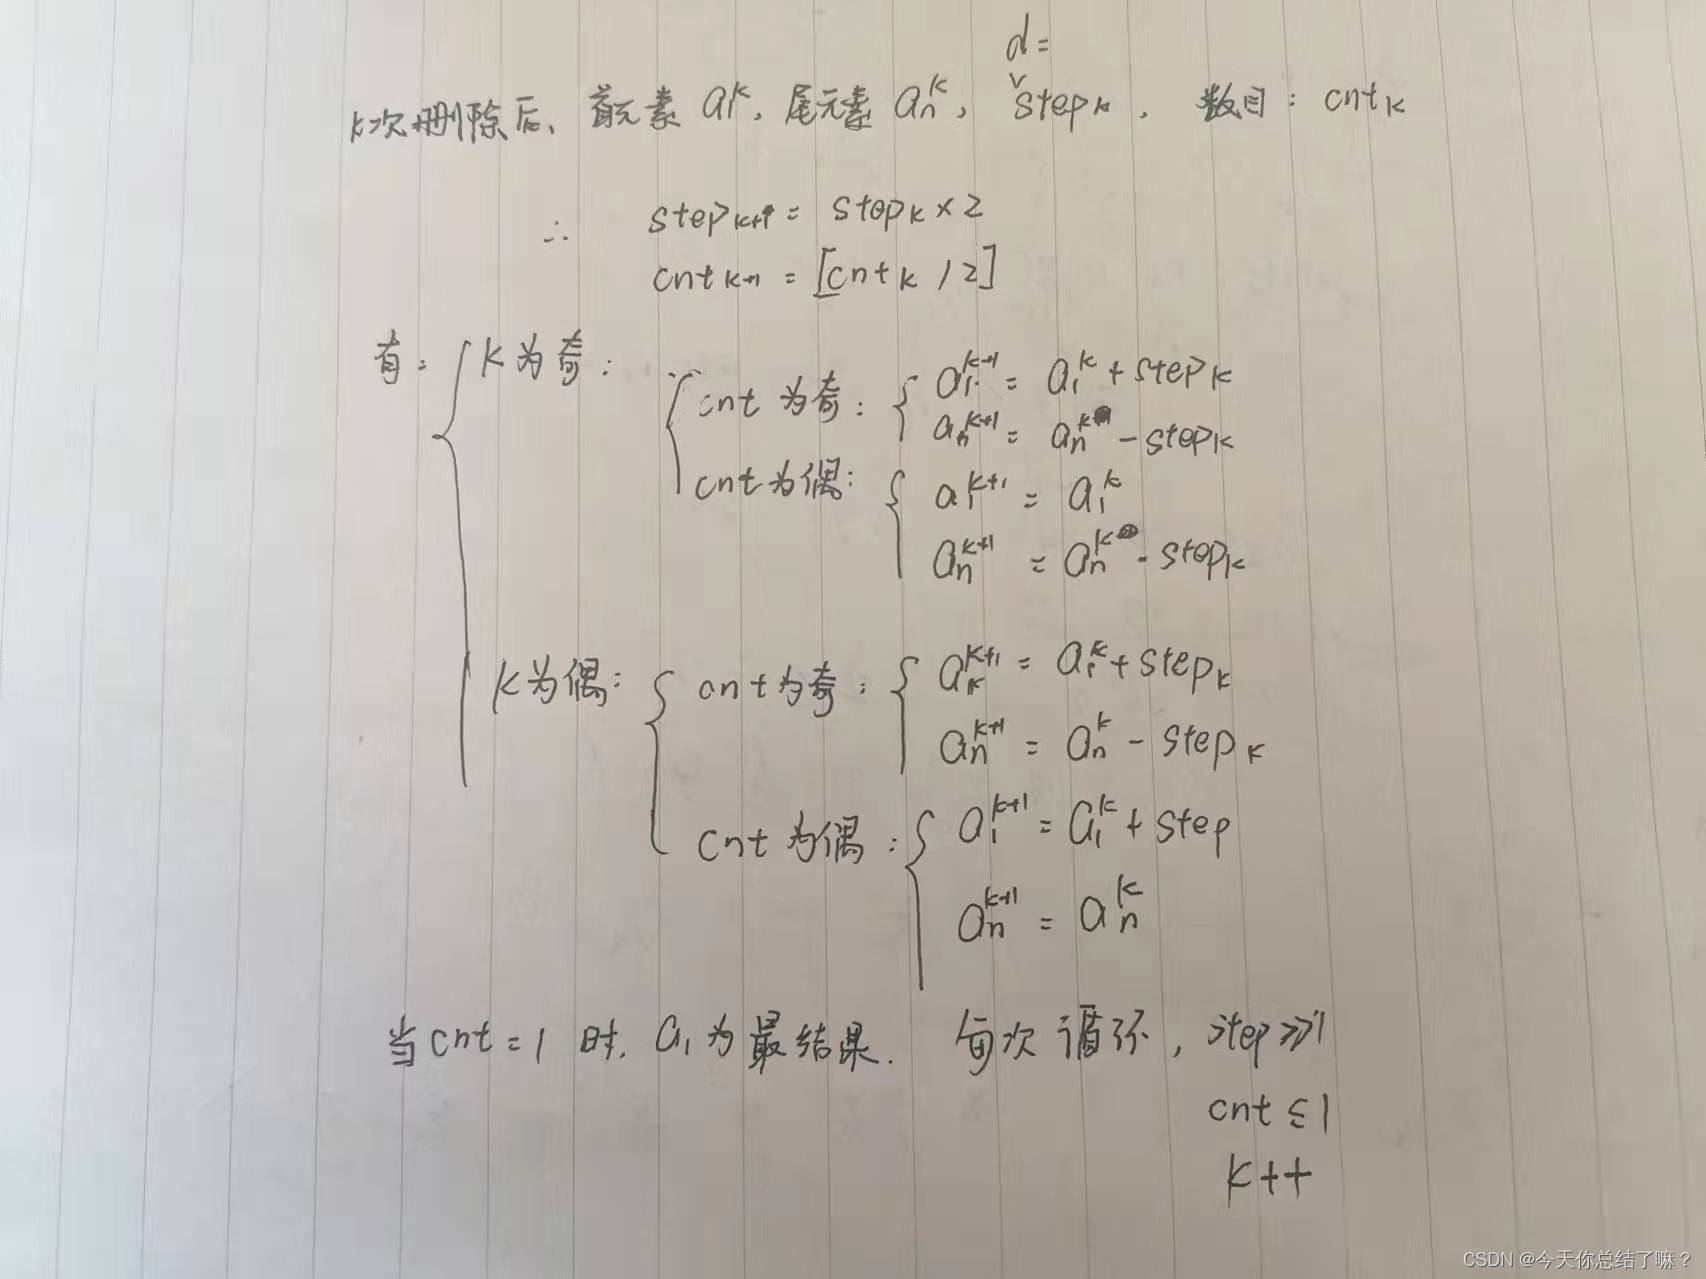 d=
k次删除后、首元素 a₁ᵏ, 尾元素 aₙᵏ, stepₖ, 数目: cntₖ
∴ stepₖ₊₁ = stepₖ × 2
cntₖ₊₁ = [cntₖ / 2]
有: k为奇:
cnt为奇: a₁ᵏ⁺¹ = a₁ᵏ + stepₖ
aₙᵏ⁺¹ = aₙᵏ - stepₖ
cnt为偶: a₁ᵏ⁺¹ = a₁ᵏ
aₙᵏ⁺¹ = aₙᵏ - stepₖ
k为偶: cnt为奇: a₁ᵏ⁺¹ = a₁ᵏ + stepₖ
aₙᵏ⁺¹ = aₙᵏ - stepₖ
cnt为偶: a₁ᵏ⁺¹ = a₁ᵏ + step
aₙᵏ⁺¹ = aₙᵏ
当cnt = 1 时, a₁为最结果. 每次循环, step
cnt ≤ 1
k++
CSDN @今天你总结了嘛？